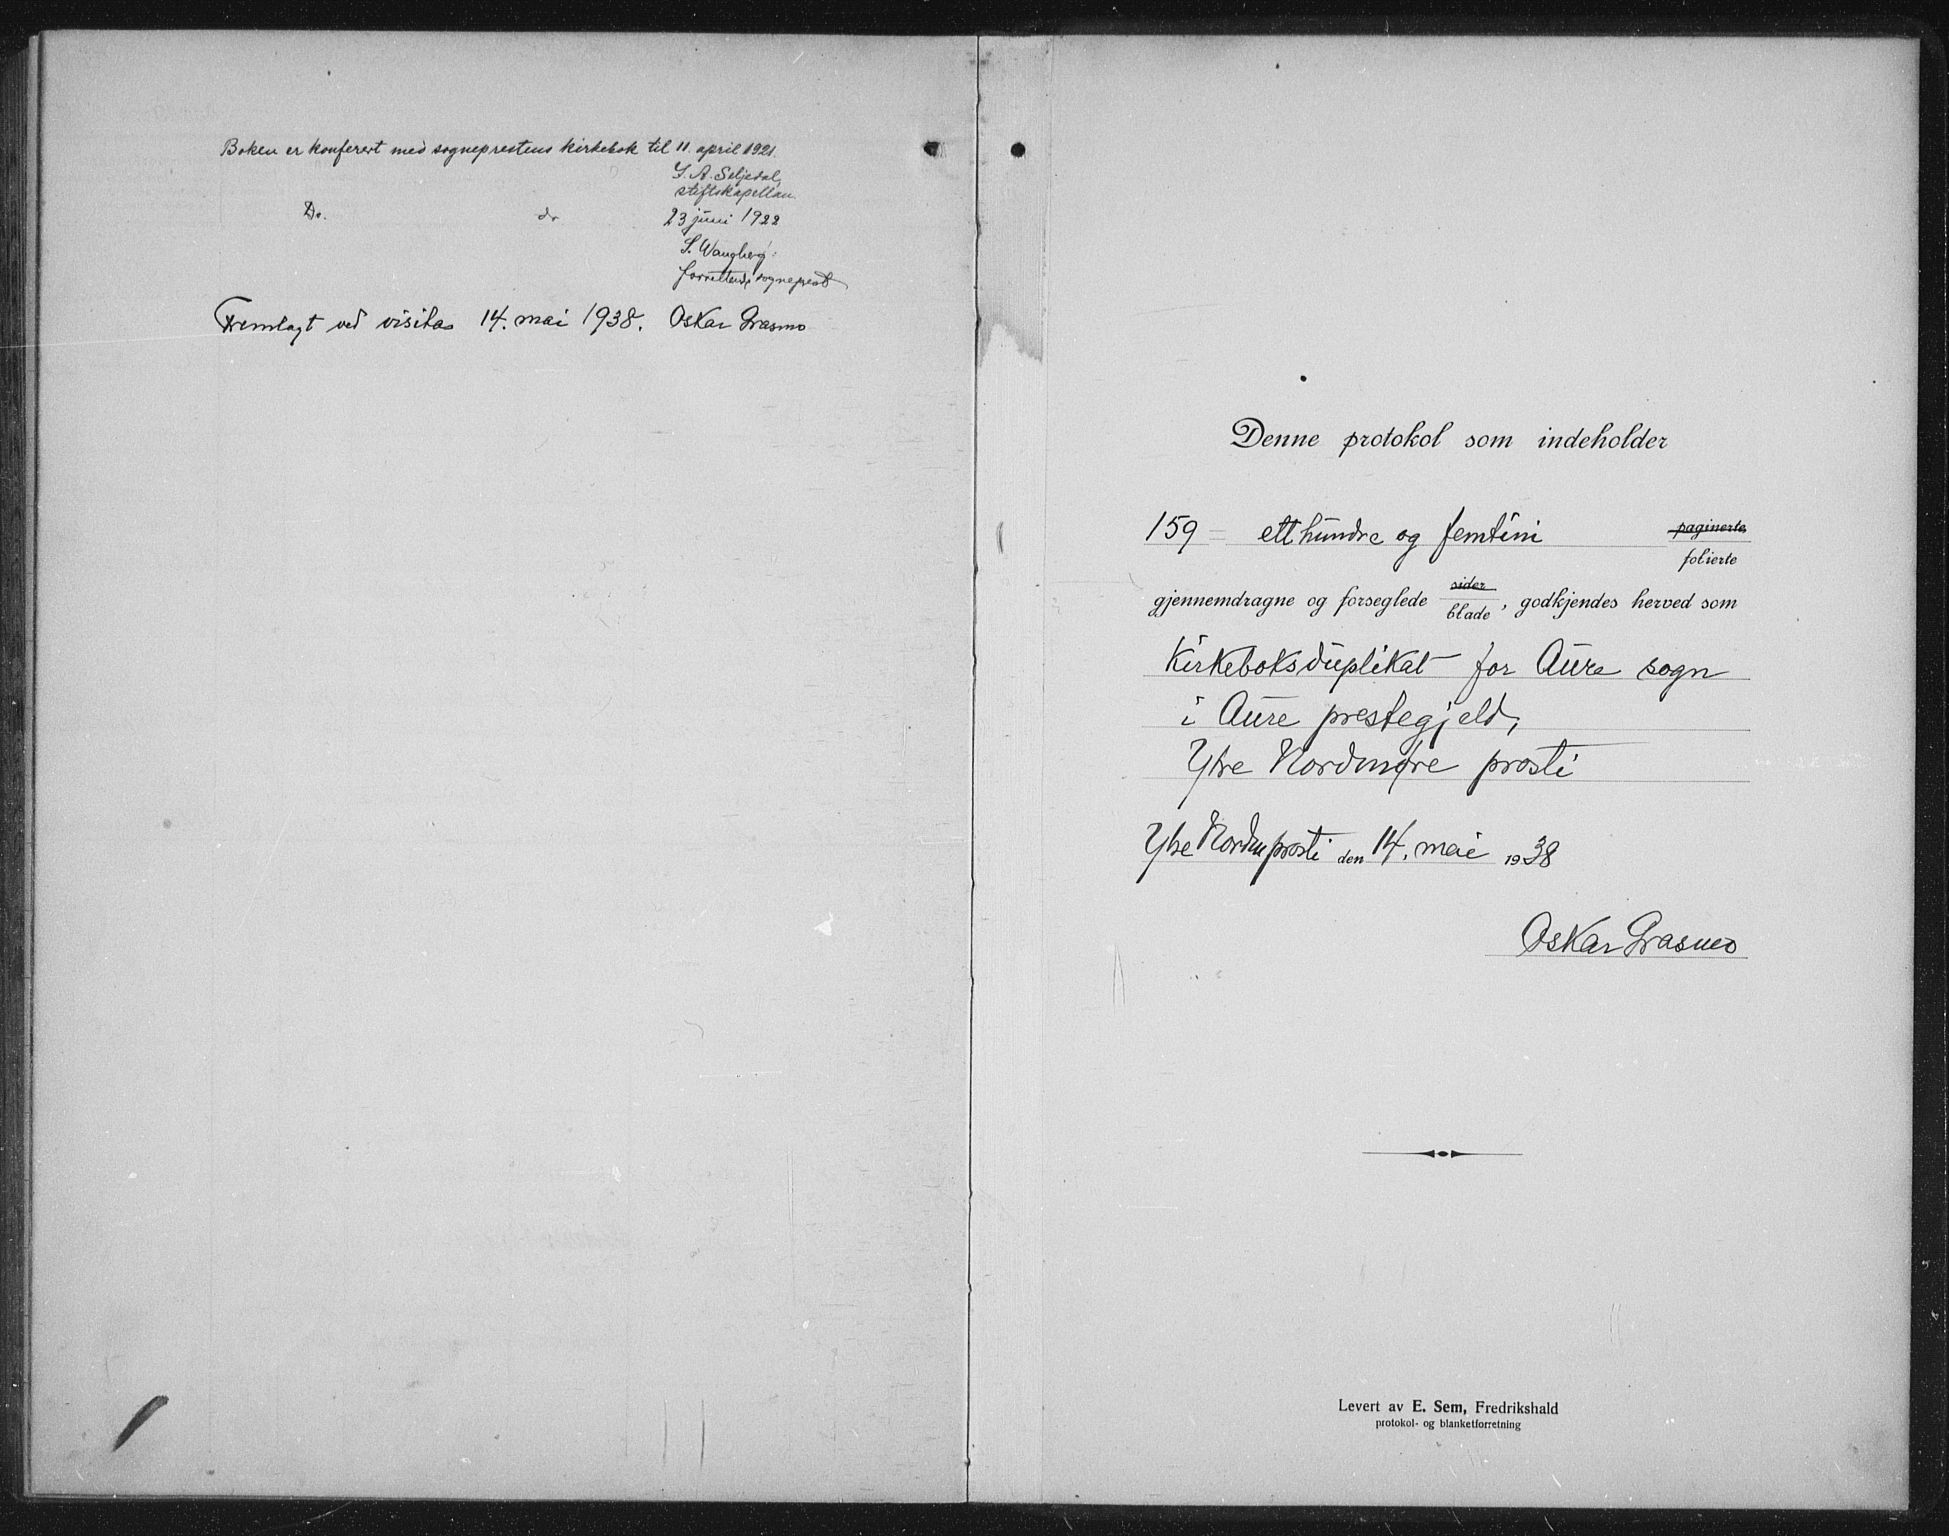 Boken er konferert med sogneprestens kirkebok til 11 april 1921.
S. A. Seljedal,
stiftskapellan.
Do. do 23 juni 1922
S. Wangberg.
forrettende sogneprest
Fremlagt ved visitas 14. mai 1938. Oskar Grasmo
Denne protokol som indeholder
159 = ett hundre og femtini paginerte
folierte
gjennemdragne og forseglede sider
blade, godkjendes herved som
Kirkeboksduplikat for Aure sogn
i Aure prestegjeld,
Ytre Nordmøre prosti
Ytre Nordm prosti den 14. mai 1938
Oskar Grasmo
Levert av E. Sem, Fredrikshald
protokol- og blanketforretning